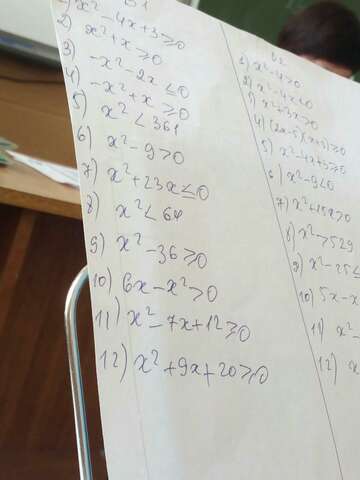 В1
x² - 4x + 3 ≥ 0
2) x² + x ≥ 0
3) -x² - 2x ≤ 0
4) -x² + x ≥ 0
5) x² < 361
6) x² - 9 > 0
7) x² + 23x ≤ 0
8) x² < 64
9) x² - 36 ≥ 0
10) 6x - x² > 0
11) x² - 7x + 12 ≥ 0
12) x² + 9x + 20 ≥ 0
В2
x² - 4 > 0
2) x² - 4x < 0
x² + 3x > 0
4) (2x - 5)(x + 3) ≥ 0
5) x² - 4x + 3 ≥ 0
6) x² - 9 < 0
7) x² + 15x > 0
8) x² > 529
9) x² - 25 ≤
10) 5x - x
11) x² -
12) x